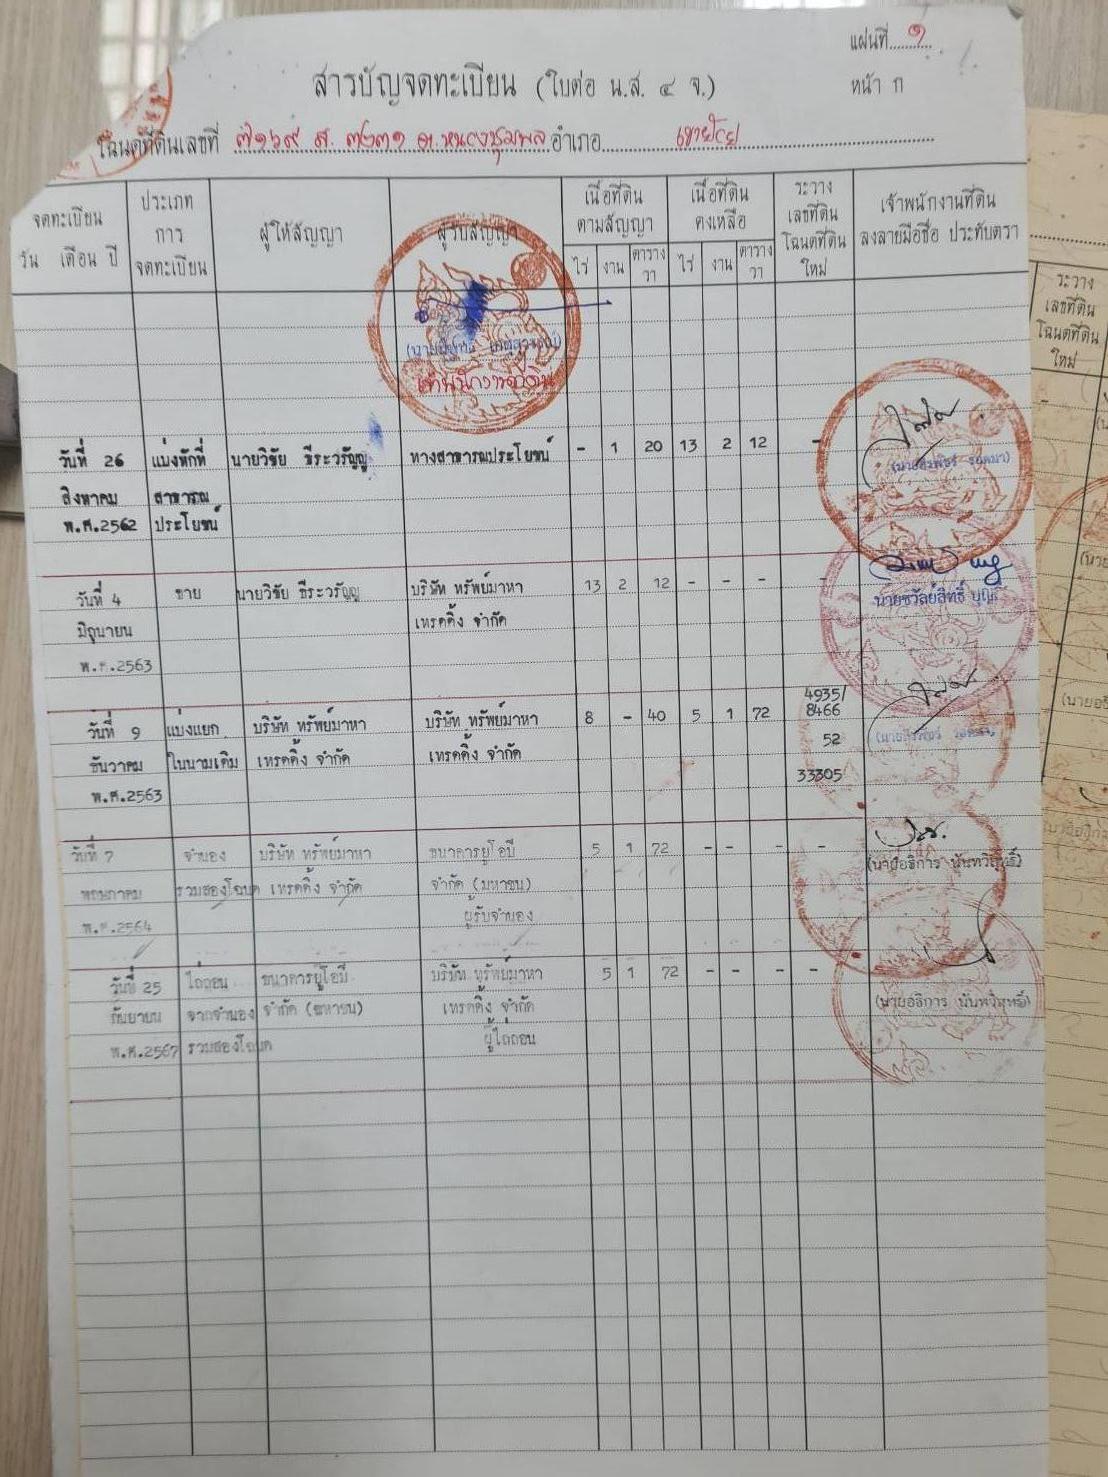 แผ่นที่ ๑
สารบัญจดทะเบียน (ใบต่อ น.ส. ๔ จ.)
หน้า ก
โฉนดที่ดินเลขที่ ๗๑๖๙ ส. ๓๒๓๑ ต.หนองชุมพล อำเภอ เขาย้อย
จดทะเบียน วัน เดือน ปี
ประเภทการจดทะเบียน
ผู้ให้สัญญา
ผู้รับสัญญา
เนื้อที่ดินตามสัญญา
ไร่ งาน ตารางวา
เนื้อที่ดินคงเหลือ
ไร่ งาน ตารางวา
ระวาง เลขที่ดิน โฉนดที่ดินใหม่
เจ้าพนักงานที่ดิน ลงลายมือชื่อ ประทับตรา
เจ้าพนักงานที่ดิน
วันที่ 26 แบ่งหักที่ นายวิชัย ธีระวรัญญู ทางสาธารณประโยชน์ - 1 20 13 2 12 -
สิงหาคม สาธารณ
พ.ศ.2562 ประโยชน์
วันที่ 4 ขาย นายวิชัย ธีระวรัญญู บริษัท ทรัพย์มาหา 13 2 12 - - - -
มิถุนายน เทรดดิ้ง จำกัด
พ.ศ.2563
4935/
วันที่ 9 แบ่งแยก บริษัท ทรัพย์มาหา บริษัท ทรัพย์มาหา 8 - 40 5 1 72 8466
ธันวาคม ในนามเดิม เทรดดิ้ง จำกัด เทรดดิ้ง จำกัด 52
พ.ศ.2563 33305
วันที่ 7 จำนอง บริษัท ทรัพย์มาหา ธนาคารยูโอบี 5 1 72 - - - -
พฤษภาคม รวมสองโฉนด เทรดดิ้ง จำกัด จำกัด (มหาชน) (นายอธิการ นันทวิสุทธิ์)
พ.ศ.2564 ผู้รับจำนอง
วันที่ 25 ไถ่ถอน ธนาคารยูโอบี บริษัท ทรัพย์มาหา 5 1 72 - - - -
กันยายน จากจำนอง จำกัด (มหาชน) เทรดดิ้ง จำกัด (นายอธิการ นันทวิสุทธิ์)
พ.ศ.2567 รวมสองโฉนด ผู้ไถ่ถอน
ระวาง
เลขที่ดิน
โฉนดที่ดิน
ใหม่